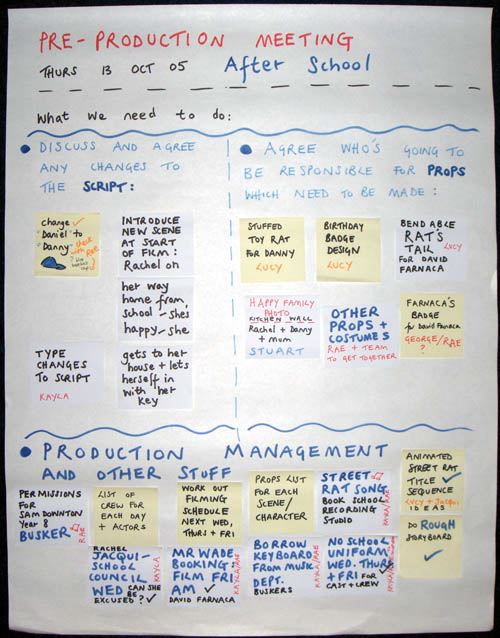 PRE-PRODUCTION MEETING
THURS 13 OCT 05 After School
What we need to do:
DISCUSS AND AGREE
ANY CHANGES TO
THE SCRIPT:
change
Daniel to
Danny-
INTRODUCE
NEW SCENE
AT START
OF FILM:
Rachel on
her way
home from
school - shes
happy - she
TYPE
CHANGES
TO SCRIPT
KAYLA
gets to her
house + lets
herself in
with her
key
AGREE WHO'S GOING TO
BE RESPONSIBLE FOR PROPS
WHICH NEED TO BE MADE:
STUFFED
TOY RAT
FOR DANNY
LUCY
BIRTHDAY
BADGE
DESIGN
LUCY
BENDABLE
RAT'S
TAIL LUCY
FOR DAVID
FARNACA
HAPPY FAMILY
PHOTO
KITCHEN WALL
Rachel + Danny
+ mum
STUART
OTHER
PROPS +
COSTUMES
RAE + TEAM
TO GET TOGETHER
FARNACA'S
BADGE
for David Farnaca
GEORGE/RAE
?
PRODUCTION MANAGEMENT
AND OTHER STUFF
PERMISSIONS
FOR
SAM DONNTON
Year 8
BUSKER
RAE
LIST OF
CREW FOR
EACH DAY
+ ACTORS
WORK OUT
FILMING
SCHEDULE
NEXT WED,
THURS + FRI
PROPS LIST
FOR EACH
SCENE/
CHARACTER
STREET
RAT SONG
BOOK SCHOOL
RECORDING
STUDIO
RAE
ANIMATED
STREET RAT
TITLE
SEQUENCE
LUCY + Jacqui
IDEAS
DO ROUGH
STORYBOARD
RACHEL
JACQUI-
SCHOOL
COUNCIL
WED CAN SHE
BE
EXCUSED?
KAYLA
MR WADE
BOOKING
FILM FRI
AM
DAVID FARNACA
KAYLA/RAE
BORROW
KEYBOARD
FROM MUSIC
DEPT.
BUSKERS
KAYLA/RAE
NO SCHOOL
UNIFORM
WED. THURS
+ FRI FOR
CAST + CREW